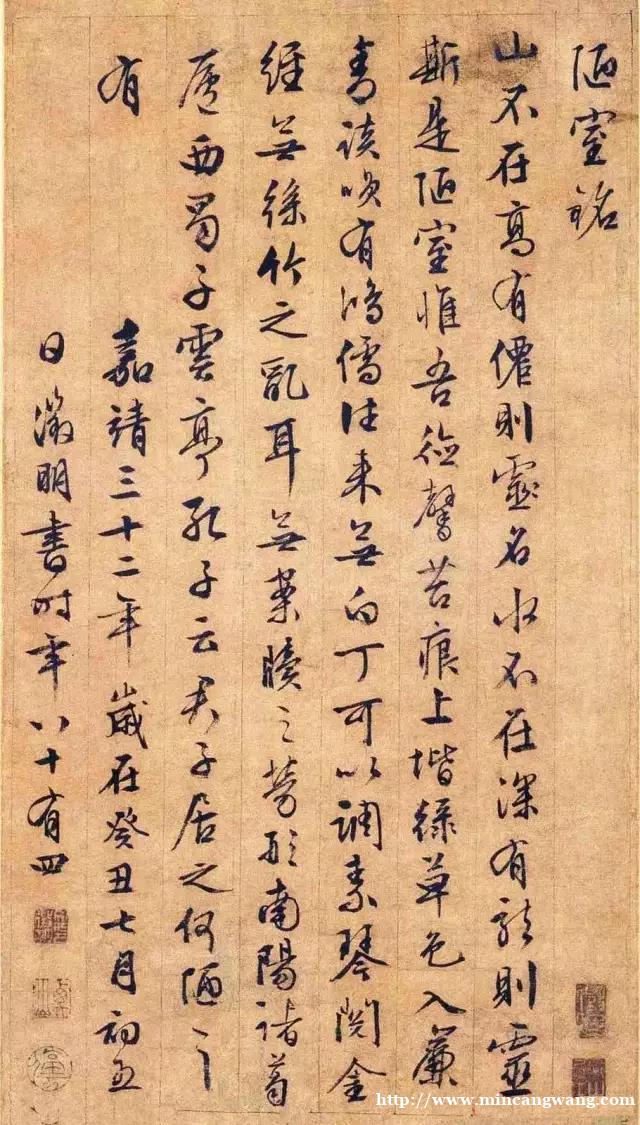 陋室銘
山不在高有僊則靈名水不在深有龍則靈
斯是陋室惟吾德馨苔痕上堦綠草色入簾
青談咲有鴻儒往來無白丁可以調素琴閱金
經無絲竹之亂耳無案牘之勞形南陽諸葛
廬西蜀子雲亭孔子云君子居之何陋之
有
嘉靖三十二年歲在癸丑七月初五
日徵明書時年八十有四
http://www.mincangwang.com